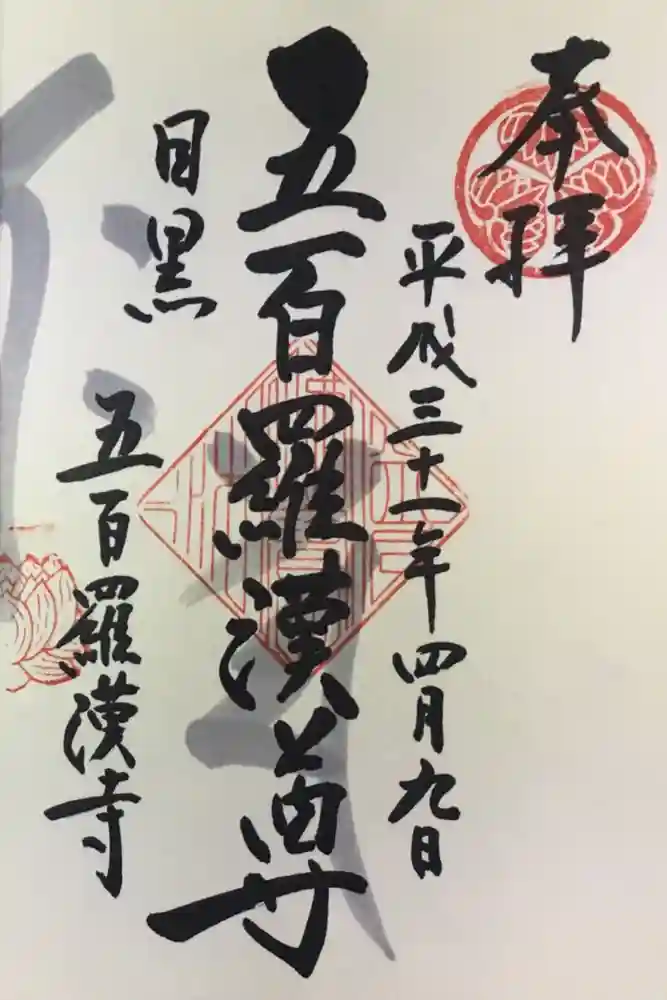 奉拝
平成三十一年四月九日
五百羅漢尊
目黒
五百羅漢寺